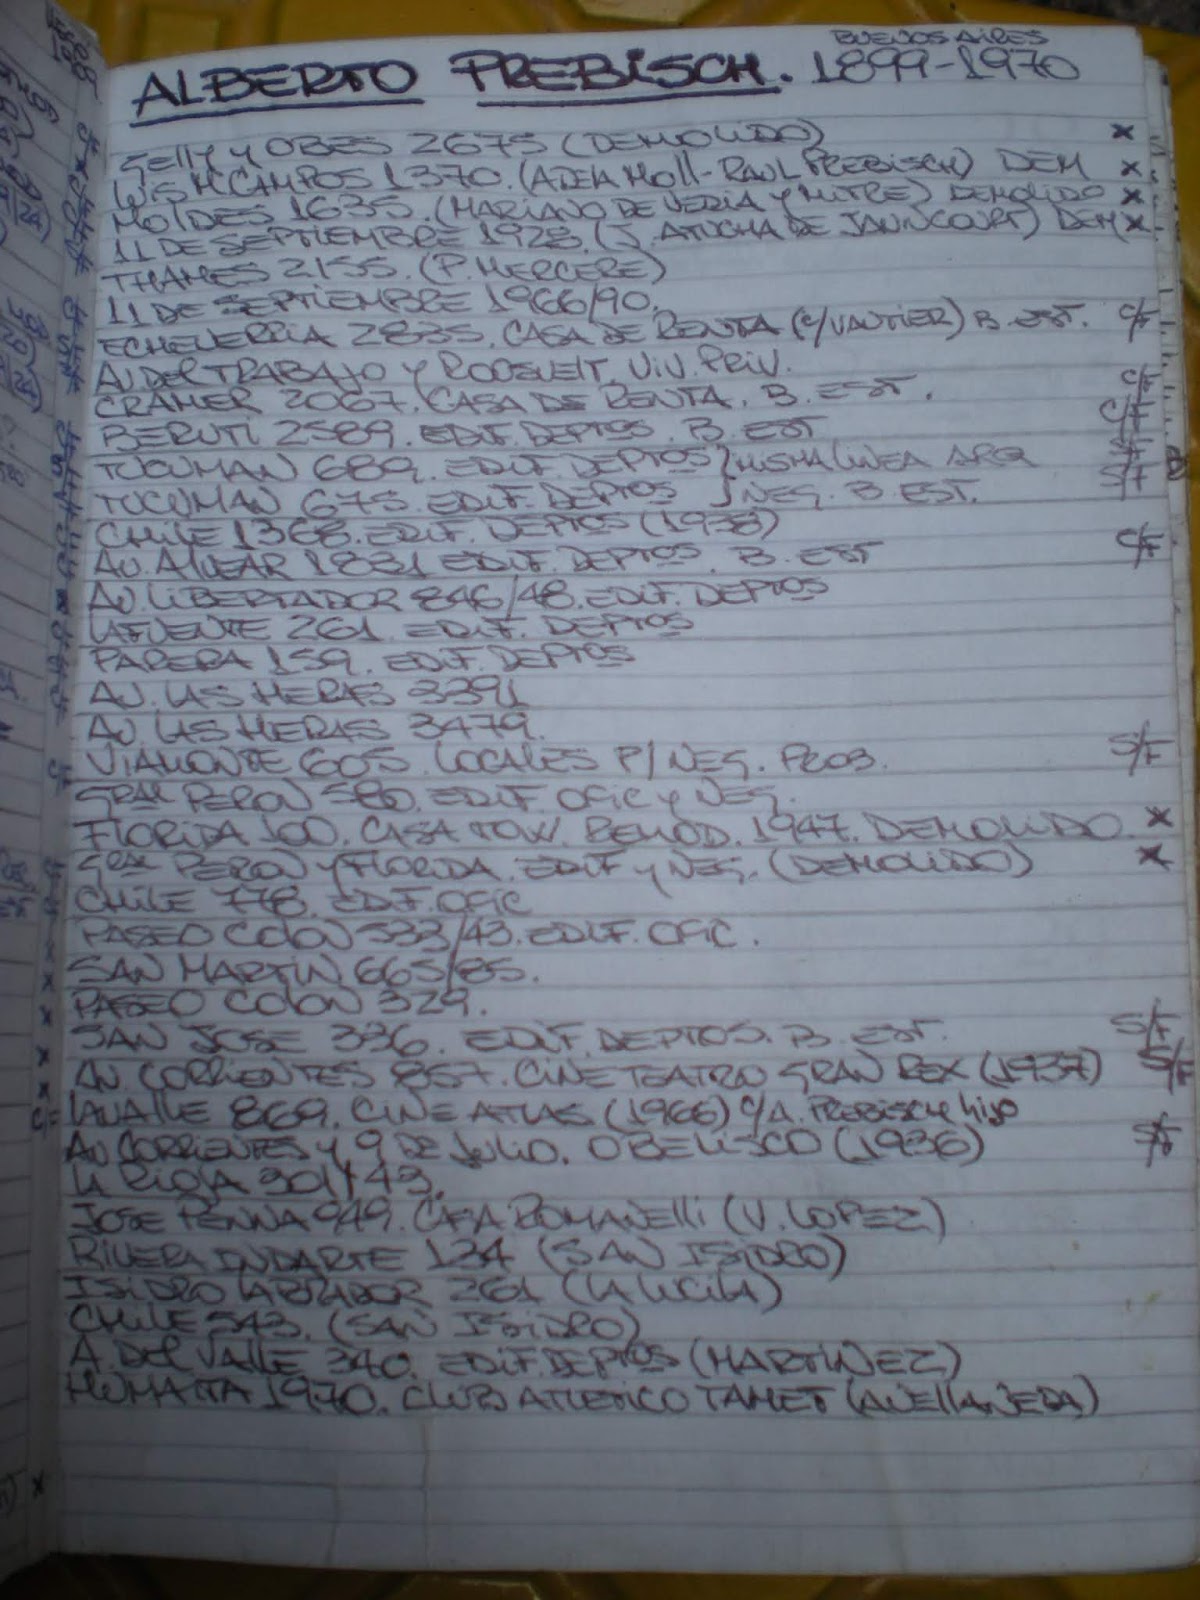 BUENOS AIRES
ALBERTO PREBISCH. 1899-1970
GELLY Y OBES 2675 (DEMOLIDO) x
LUIS M CAMPOS 1370. (ADELA MOLL - RAUL PREBISCH) DEM x
MOLDES 1635. (MARIANO DE VEDIA Y MITRE) DEMOLIDO x
11 DE SEPTIEMBRE 1928. (J. ATUCHA DE JAUNCOURT) DEM x
THAMES 2155. (P. MERCERE)
11 DE SEPTIEMBRE 1966/90.
ECHEVERRIA 2835. CASA DE RENTA (C/VAUTIER) B. EST. C/F
AV. DEL TRABAJO Y ROOSEVELT. VIV. PRIV.
CRAMER 2067. CASA DE RENTA. B. EST. C/F
BERUTI 2589. EDIF. DEPTOS. B. EST C/F
TUCUMAN 689. EDIF. DEPTOS } MISMA LINEA ARQ S/F
TUCUMAN 675. EDIF. DEPTOS } NEG. B. EST. S/F
CHILE 1368. EDIF. DEPTOS (1938)
AV. ALVEAR 1831 EDIF. DEPTOS. B. EST C/F
AV. LIBERTADOR 846/48. EDIF. DEPTOS
LAFUENTE 261. EDIF. DEPTOS
PARERA 159. EDIF. DEPTOS
AV. LAS HERAS 3391
AV. LAS HERAS 3479.
VIAMONTE 605. LOCALES P/NEG. PROB. S/F
GRAL PERON 580. EDIF. OFIC Y NEG.
FLORIDA 100. CASA TOW. REMOD. 1947. DEMOLIDO. x
GRAL PERON Y FLORIDA. EDIF Y NEG. (DEMOLIDO) x
CHILE 778. EDIF. OFIC
PASEO COLON 533/43. EDIF. OFIC.
SAN MARTIN 665/85.
PASEO COLON 329.
SAN JOSE 336. EDIF. DEPTOS. B. EST. S/F
AV. CORRIENTES 857. CINE TEATRO GRAN REX (1937) S/F
LAVALLE 869. CINE ATLAS (1966) C/A. PREBISCH hijo
AV CORRIENTES Y 9 DE JULIO. OBELISCO (1936) S/F
LA RIOJA 301/43.
JOSE PENNA 949. CASA ROMANELLI (V. LOPEZ)
RIVERA INDARTE 134 (SAN ISIDRO)
ISIDRO LABRADOR 261 (LA LUCILA)
CHILE 543. (SAN ISIDRO)
A. DEL VALLE 340. EDIF. DEPTOS (MARTINEZ)
HUMAITA 1970. CLUB ATLETICO TAMET (AVELLANEDA)